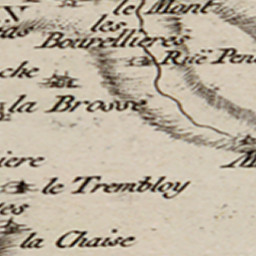 le Mont
les
Bourellieres
Ruë Pen
che
la Brosse
iere
le Trembloy
es
la Chaise